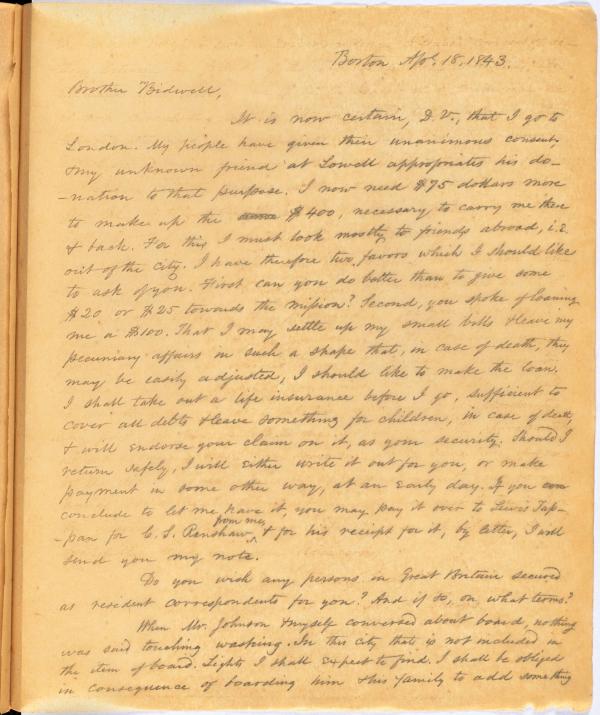 Boston Apl. 18, 1843.
Brother Bidwell,
It is now certain, D.V., that I go to
London. My people have given their unanimous consent,
& my unknown friend at Lowell appropriates his do-
-nation to that purpose. I now need $75 dollars more
to make up the $400, necessary to carry me there
& back. For this I must look mostly to friends abroad, i.e.
out of the city. I have therefore two favors which I should like
to ask of you. First can you do better than to give some
$20 or $25 towards the mission? Second, you spoke of loaning
me a $100. That I may settle up my small bills & leave my
pecuniary affairs in such a shape that, in case of death, they
may be easily adjusted, I should like to make the loan.
I shall take out a life insurance before I go, sufficient to
cover all debts & leave something for children, in case of death,
& will endorse your claim on it, as your security. Should I
return safely, I will either write it out for you, or make
payment in some other way, at an early day. If you con
conclude to let me have it, you may pay it over to Lewis Tap-
-pan for C. S. Renshaw from me, & for his receipt for it, by letter, I will
send you my note.
Do you wish any persons in Great Britain secured
as resident correspondents for you? And if so, on what terms?
When Mr. Johnson & myself conversed about board, nothing
was said touching washing. In this city that is not included in
the item of board. Lights I shall expect to find. I shall be obliged
in consequence of boarding him & his family to add something